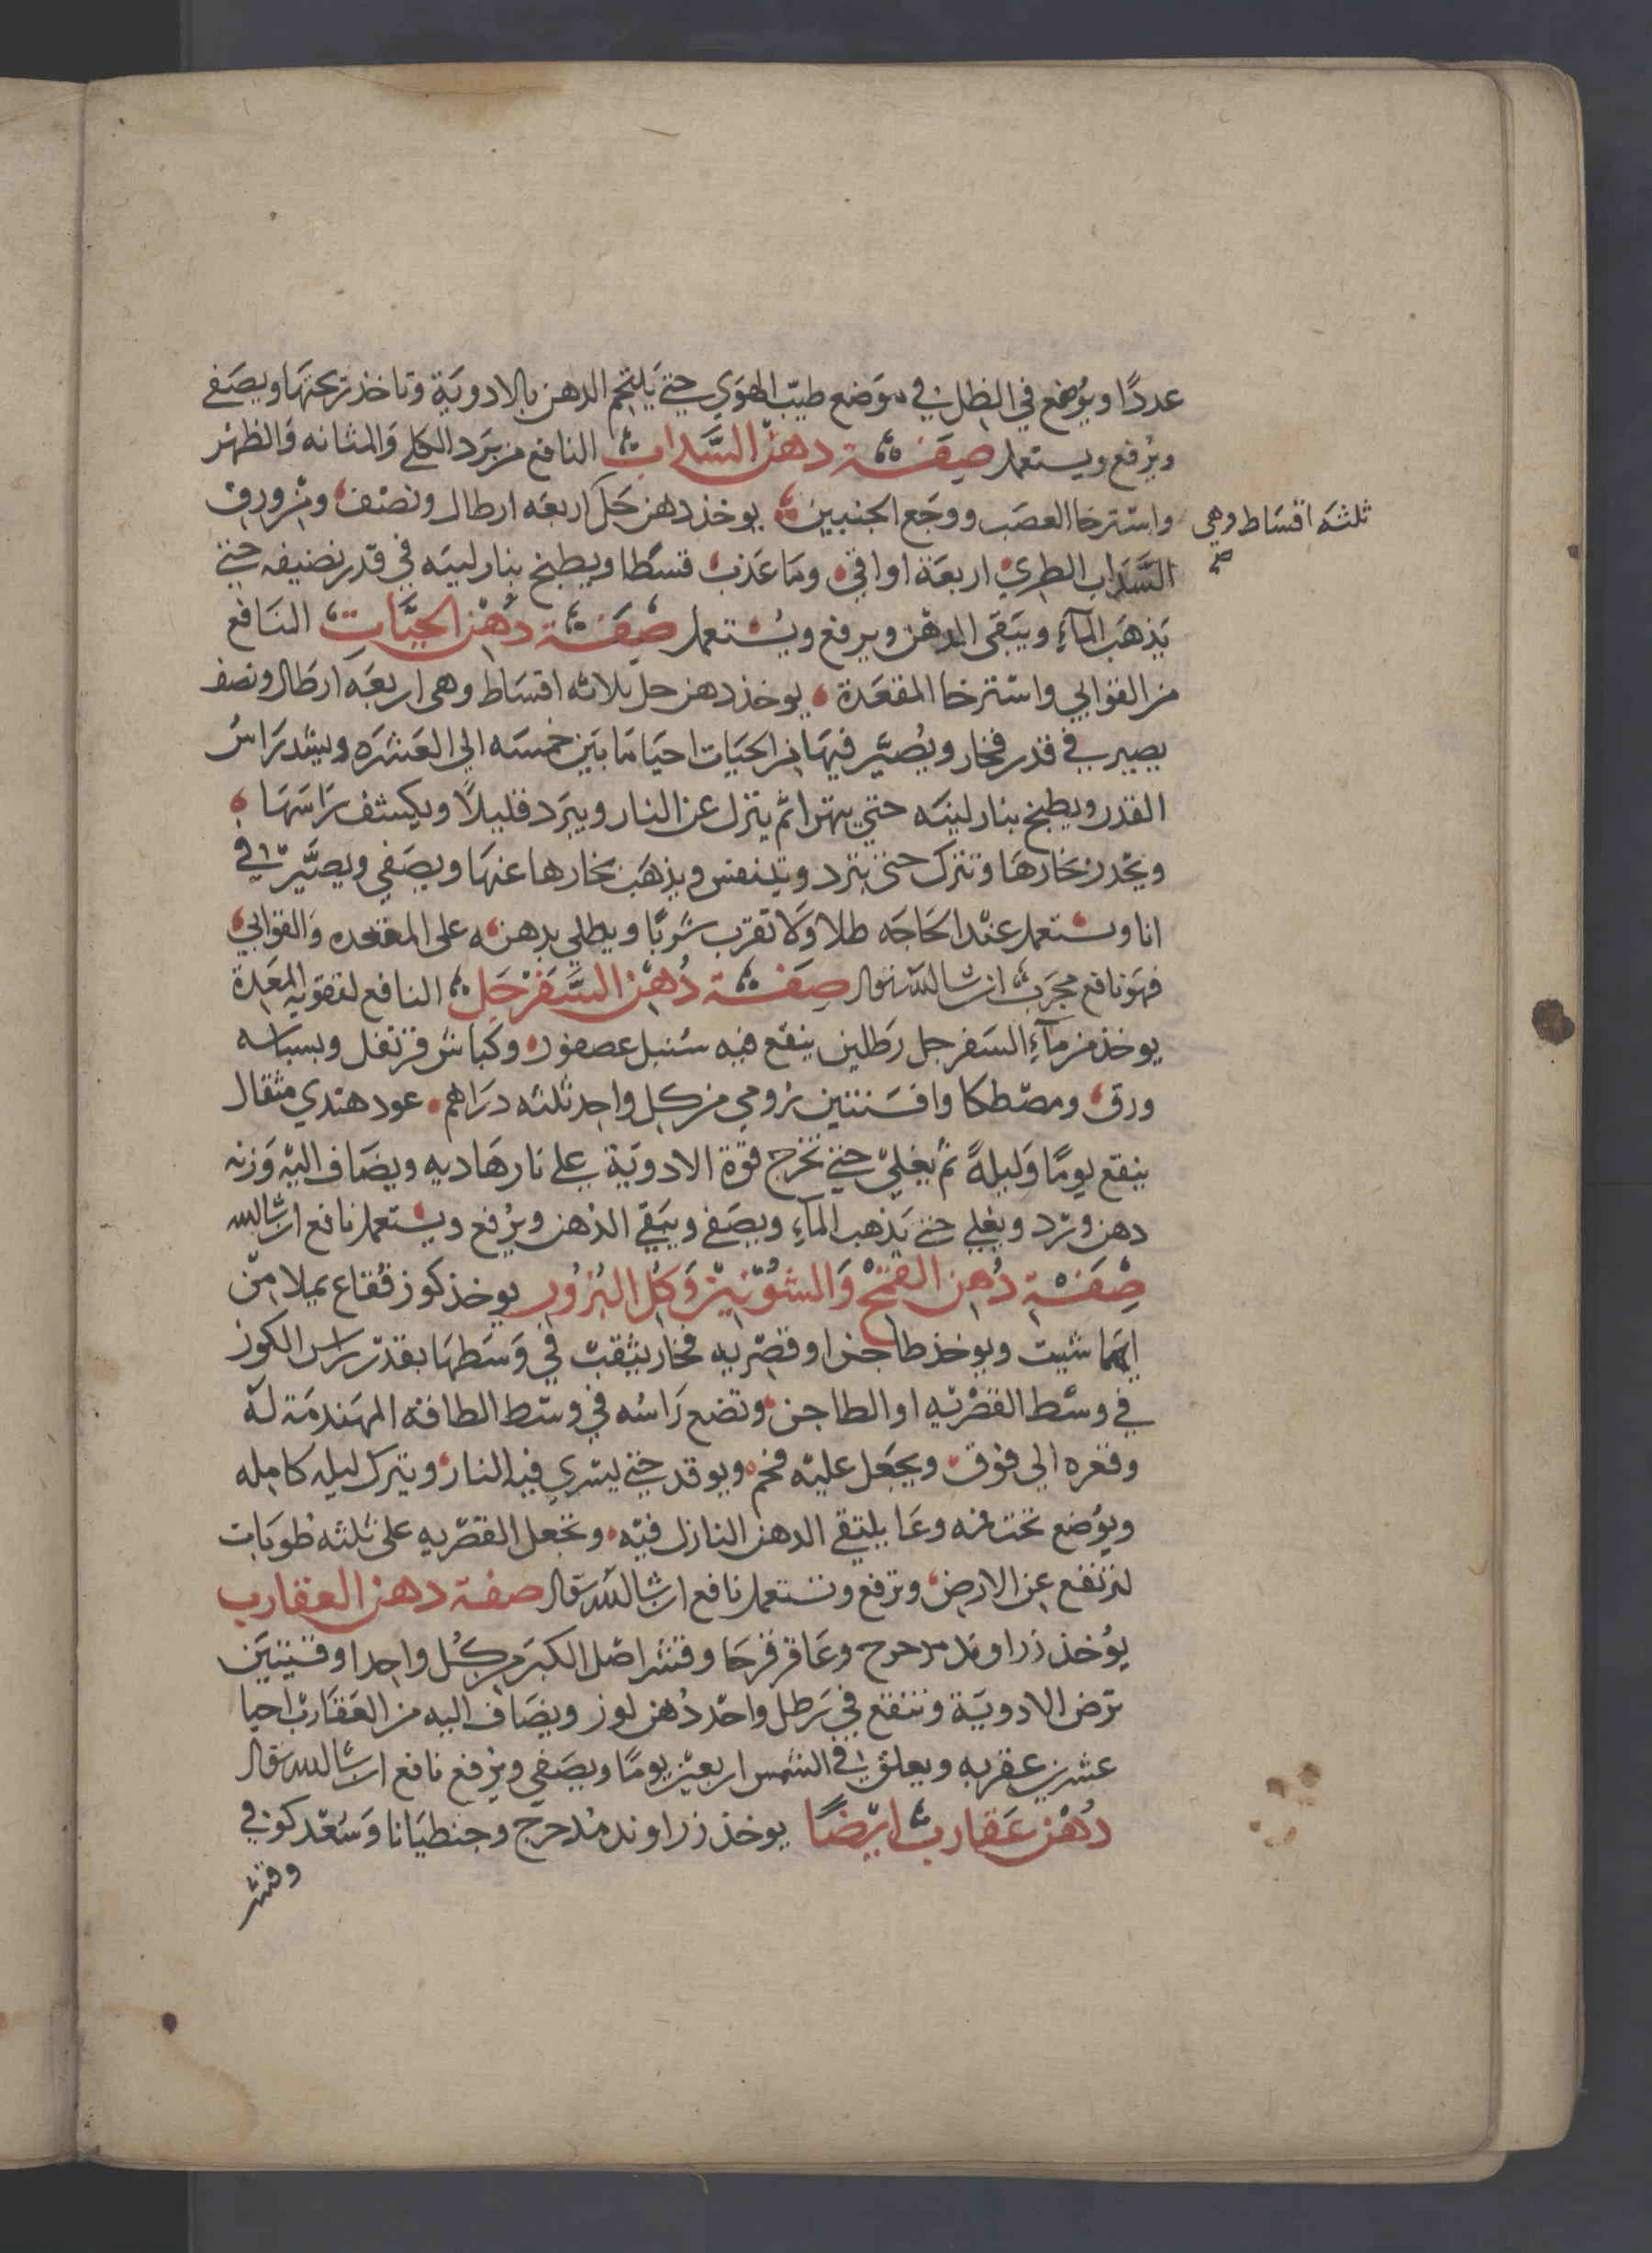 عددًا ويوضع في الظل في موضع طيّب الهوي حتي يلتحم الدهن بالادوية وتاخذ ريحتها ويصفى
ويرفع ويستعمل صفة دهن السداب النافع من برد الكلي والمثانه والظهر
واسترخا العصب ووجع الجنبين يوخذ دهن حل اربعه ارطال ونصف ومن ورق
ثلثه اقساط وهي صح
السداب الطري اربعة اواقي وما عذب قسطا ويطبخ بنار لينه في قدر نضيفه حتي
يذهب المآء ويبقى الدهن ويرفع ويستعمل صفة دهن الحيّات النافع
من القوابي واسترخا المقعدة يوخذ دهن حل ثلاثه اقساط وهى اربعه ارطال ونصف
يصير في قدر فخار ويصيّر فيها من الحيات احيا ما بين خمسه الي العشره ويشد راس
القدر ويطبخ بنار لينه حتي يتهرا ثم ينزل عن النار ويبرد قليلاً ويكشف راسها
ويحدر بخارها وتترك حتى تبرد ويتنفس ويذهب بخارها عنها ويصفي ويصيّر في
انا ويستعمل عند الحاجه طلا ولا تقرب شربًا ويطلي بدهنه على المقعده والقوابي
فهو نافع مجرب ان شا الله تعالى صفة دهن السفرجل النافع لتقوية المعدة
يوخذ من مآء السفرجل رطلين ينقع فيه سنبل عصفور وكباش قرنفل وبسباسه
ورق ومصطكا وافسنتين رومي من كل واحد ثلثه دراهم عود هندي مثقال
ينقع يومًا وليلةً ثم يغلي حتي تخرج قوة الادوية علي نار هاديه ويضاف اليه وزنه
دهن ورد ويغلي حتي يذهب المآء ويصفى ويبقي الدهن ويرفع ويستعمل نافع ان شا الله
صفة دهن القمح والشونيز وكل البزور يوخذ كوز فقاع يملا من
ايهما شيت ويوخذ طاجن او قصريه فخار يثقب في وسطها بقدر راس الكوز
في وسط القصريه او الطاجن وتضع راسه في وسط الطاقه المهندمة له
وقعره الي فوق ويجعل عليه فحم ويوقد حتي يسري فيه النار ويترك ليله كامله
ويوضع تحت فمه وعا يلتقي الدهن النازل فيه وتجعل القصريه على ثلثه طوبات
لترتفع عن الارض وترفع وتستعمل نافع ان شا الله تعالى صفة دهن العقارب
يوخذ زراوند مدحرج وعاقرقرحا وقشر اصل الكبر من كل واحد اوقيتين
ترض الادوية وتنقع في رطل واحد دهن لوز ويضاف اليه من العقارب احيا
عشرين عقربه ويعلق في الشمس اربعين يومًا ويصفي ويرفع نافع ان شا الله تعالى
دهن عقارب ايضًا يوخذ زراوند مدحرج وجنطيانا وسعد كوفي
وقشر